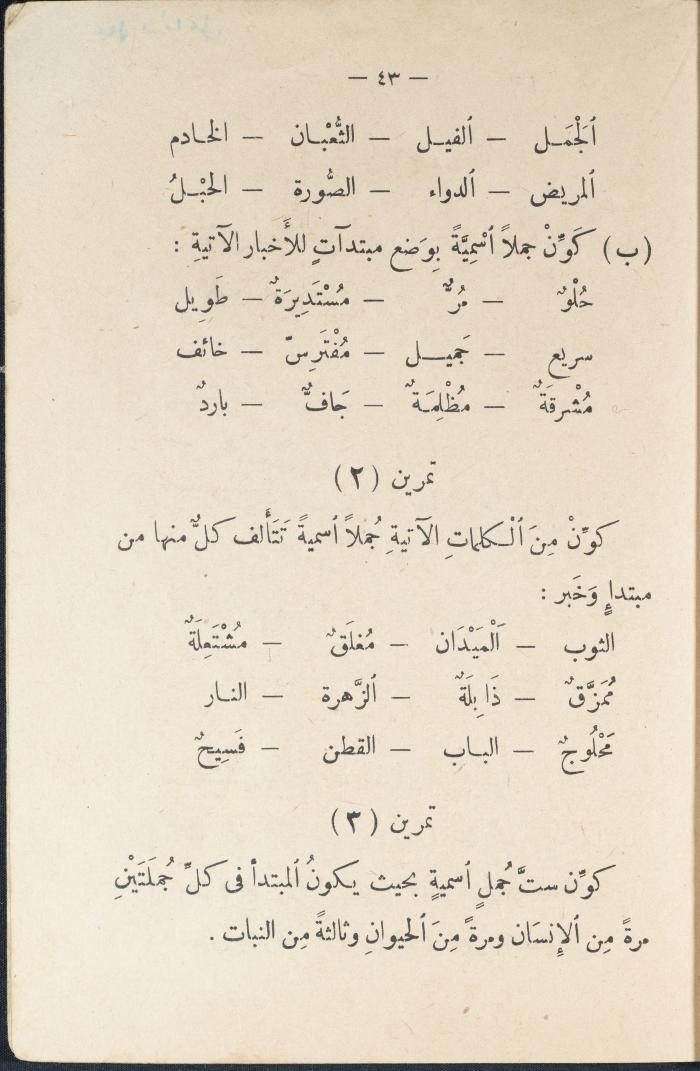 — ٤٣ —
ٱلْجَمَل — ٱلفيل — الثُّعْبان — الخادم
ٱلمريض — ٱلدواء — الصُّورة — الحبْلُ
(ب) كَوِّنْ جملاً ٱسْمِيَّةً بِوَضع مبتدآتٍ للأَخبار الآتيةِ :
حُلْوٌ — مُرٌّ — مُسْتَدِيرَةٌ — طَوِيل
سريع — جَميل — مُفْتَرِسٌ — خائف
مُشْرقَةٌ — مُظْلِمَةٌ — جَافٌّ — باردٌ
تمرين (٢)
كوِّنْ مِنَ ٱلْكلماتِ الآتيةِ جُملاً ٱسميةً تَتَأَلف كلٌّ منها من
مبتدإٍ وَخَبر :
الثوب — ٱلْمَيْدَان — مُغلَقٌ — مُشْتَعِلَةٌ
مُمَزَّقٌ — ذَابِلَةٌ — ٱلزَّهرة — النار
مَحْلُوجٌ — الباب — القطن — فَسِيحٌ
تمرين (٣)
كوِّن ستَّ جُملٍ ٱسميةٍ بحيث يكونُ ٱلمبتدأ فى كلِّ جُملَتَيْنِ
مرةً مِن ٱلإِنسَان ومرةً مِنَ ٱلحيوانِ وثالثةً مِن النبات .